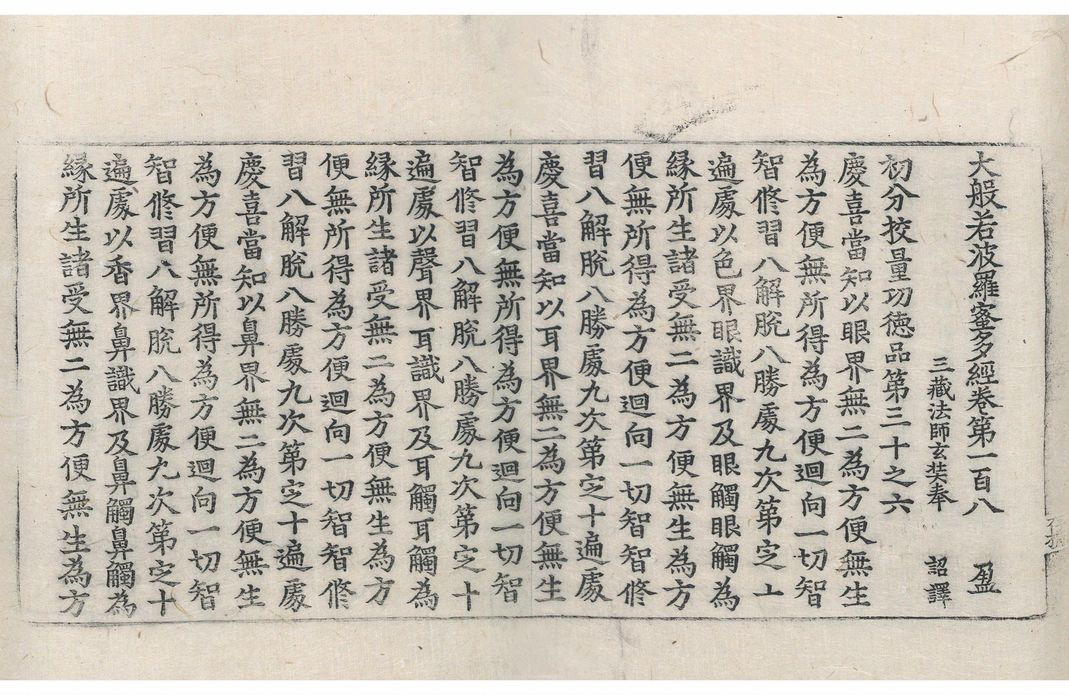 大般若波羅蜜多經卷第一百八　盈
三藏法師玄奘奉　詔譯
初分挍量功德品第三十之六
慶喜當知以眼界無二為方便無生
為方便無所得為方便迴向一切智
智修習八解脫八勝處九次第定十
遍處以色界眼識界及眼觸眼觸為
緣所生諸受無二為方便無生為方
便無所得為方便迴向一切智智修
習八解脫八勝處九次第定十遍處
慶喜當知以耳界無二為方便無生
為方便無所得為方便迴向一切智
智修習八解脫八勝處九次第定十
遍處以聲界耳識界及耳觸耳觸為
緣所生諸受無二為方便無生為方
便無所得為方便迴向一切智智修
習八解脫八勝處九次第定十遍處
慶喜當知以鼻界無二為方便無生
為方便無所得為方便迴向一切智
智修習八解脫八勝處九次第定十
遍處以香界鼻識界及鼻觸鼻觸為
緣所生諸受無二為方便無生為方